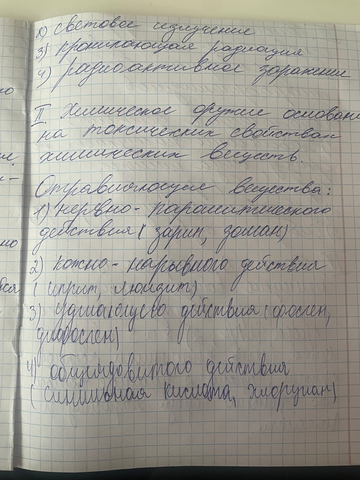 2) световое излучение
3) проникающая радиация
4) радиоактивное заражение
II Химическое оружие основано
на токсических свойствах
химических веществ.
Отравляющие вещества:
1) нервно-паралитического
действия (зарин, зоман)
2) кожно-нарывного действия
(иприт, люизит)
3) удушающего действия (фосген,
дифосген)
4) общеядовитого действия
(синильная кислота, хлорциан)